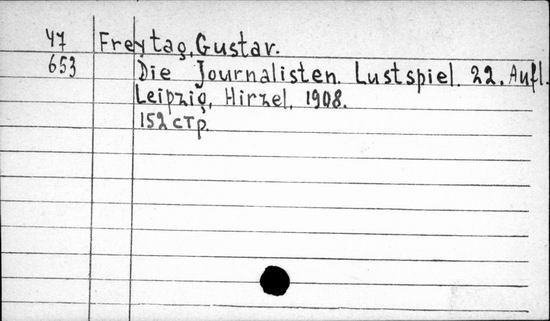 47 Freytag, Gustav.
653 Die Journalisten. Lustspiel. 22. Aufl.
Leipzig, Hirzel, 1908.
152 стр.